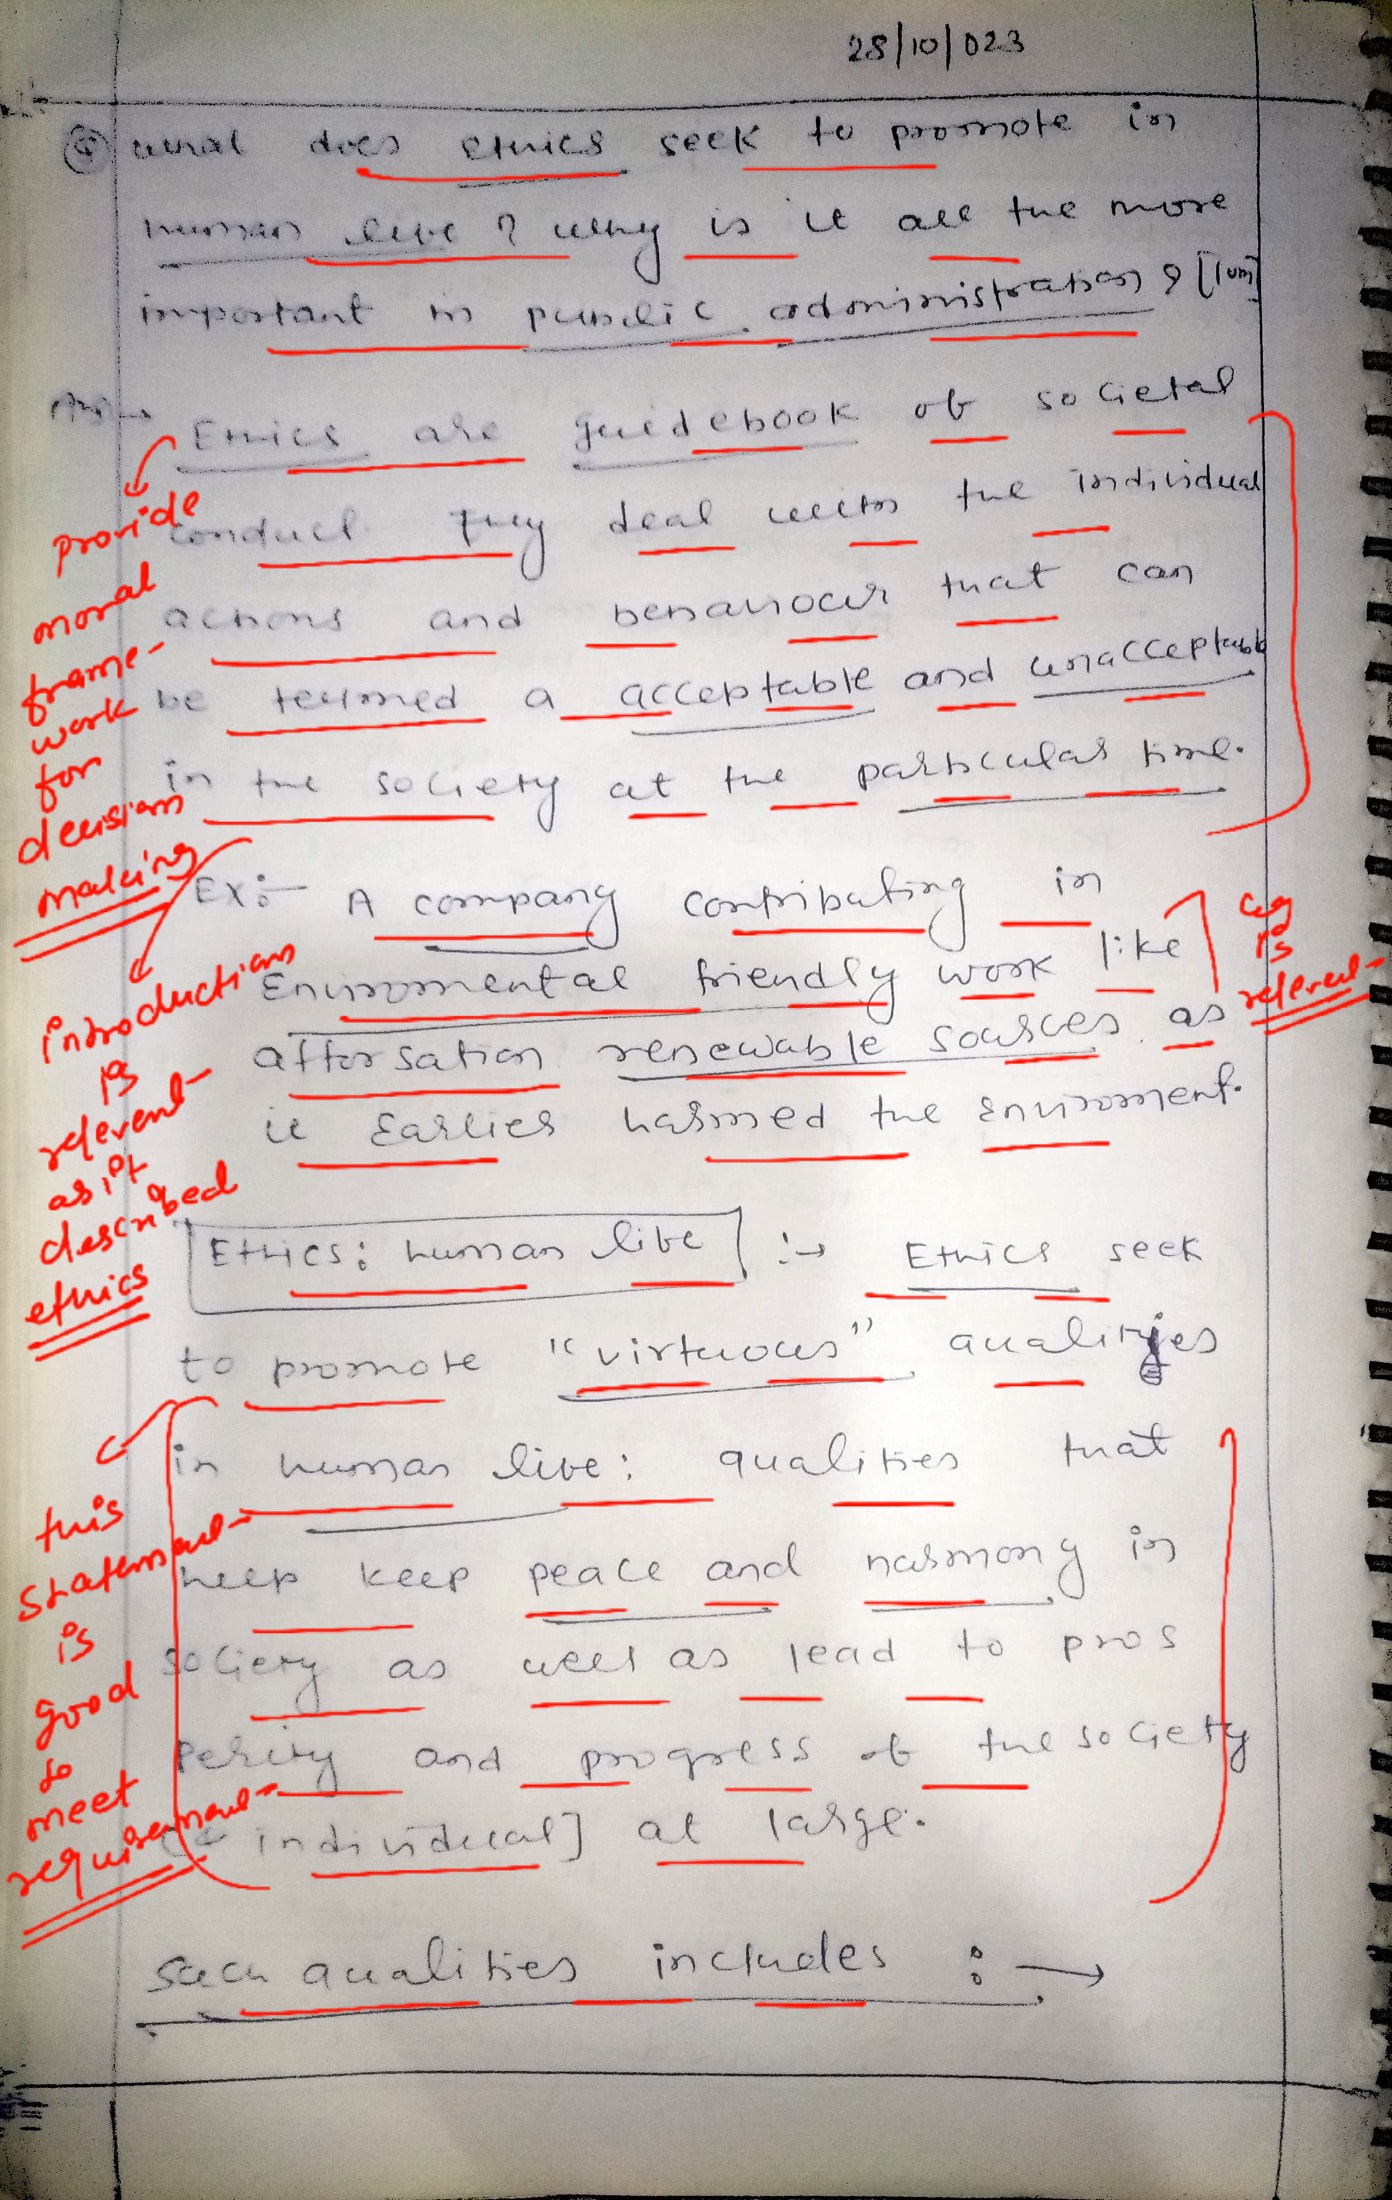 28/10/023
Q what does ethics seek to promote in
human life ? why is it all the more
important in public administration ? [10m]
Ans:-
Ethics are guidebook of societal
conduct they deal with the individual
actions and behaviour that can
be termed a acceptable and unacceptable
in the society at the particular time.
provide
moral
frame-
work
for
decision
making
Ex:- A company contributing in
Enviromental friendly work like
renewable sources as
it Earlier harmed the Enviroment.
eg
is
relevent
introduction
is
relevent
as it
described
ethics
Ethics: human life :→ Ethics seek
to promote "virtuous" qualities
in human life: qualities that
help keep peace and harmony in
society as well as lead to pros
perity and progress of the society
individual] at large.
this
statement
is
good
to
meet
requirement
such qualities includes :→